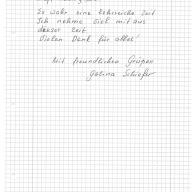 Es wahr eine lehrreiche Zeit
Ich nehme viel mit aus
dieser Zeit.
Vielen Dank für alles!
Mit freundlichen Grüßen
Galina Schiefer